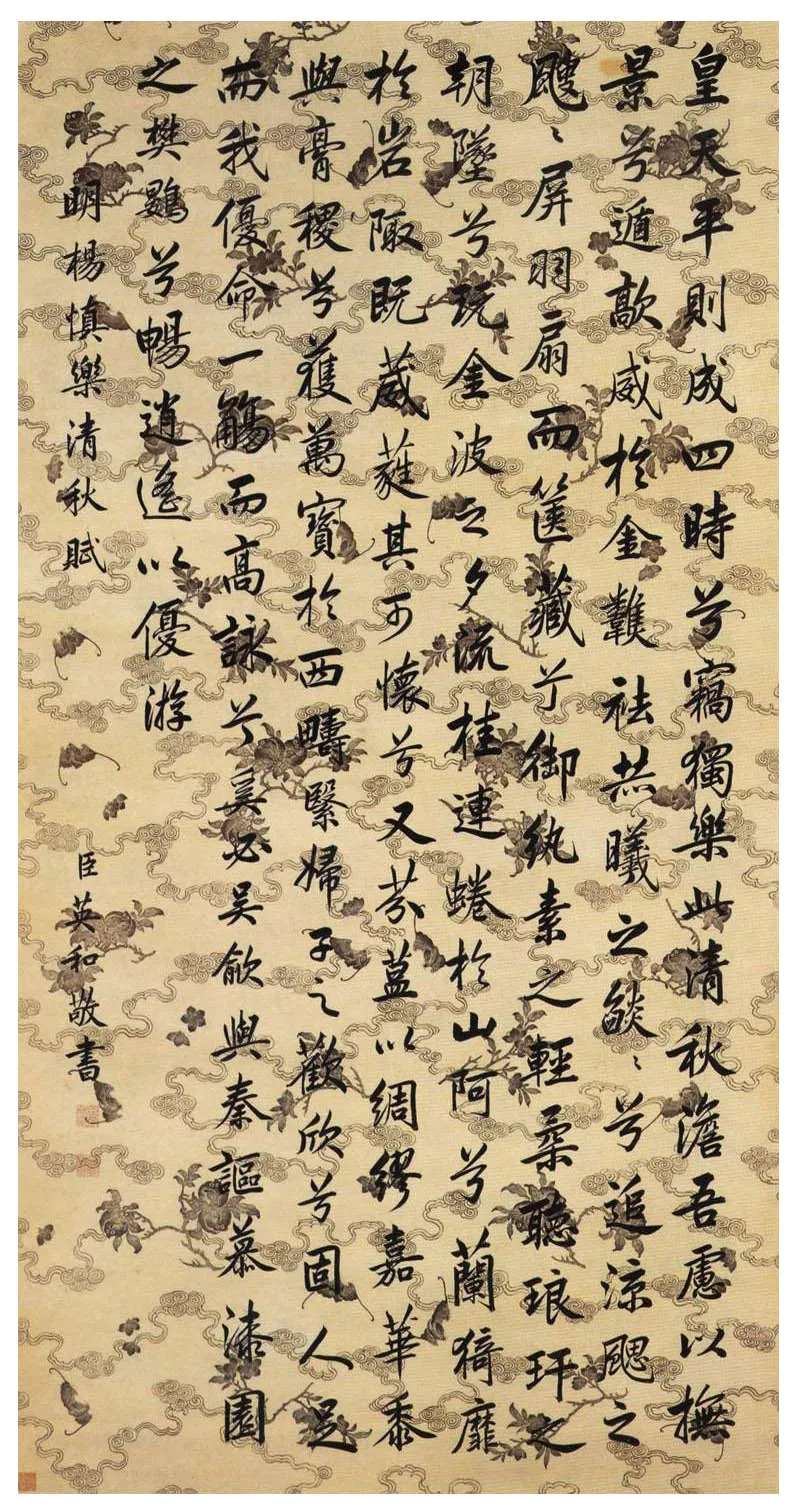 皇天平則成四時兮竊獨樂此清秋澹吾慮以撫
景兮遁歊威於金鷷祛恭曦之燄〻兮追涼颸之
颼〻屏羽扇而篋藏兮御紈素之輕柔聽琅玕之
朝墜兮玩金波之夕流桂連蜷於山阿兮蘭猗靡
於岩陬既葳蕤其可懷兮又芬蒀以綢繆嘉華黍
與膏稷兮獲萬寶於西疇緊婦子之歡欣兮固人足
而我優命一觴而高詠兮奚必吳歈與秦謳慕漆園
之樊鷃兮暢逍遙以優游
明楊慎樂清秋賦
臣英和敬書